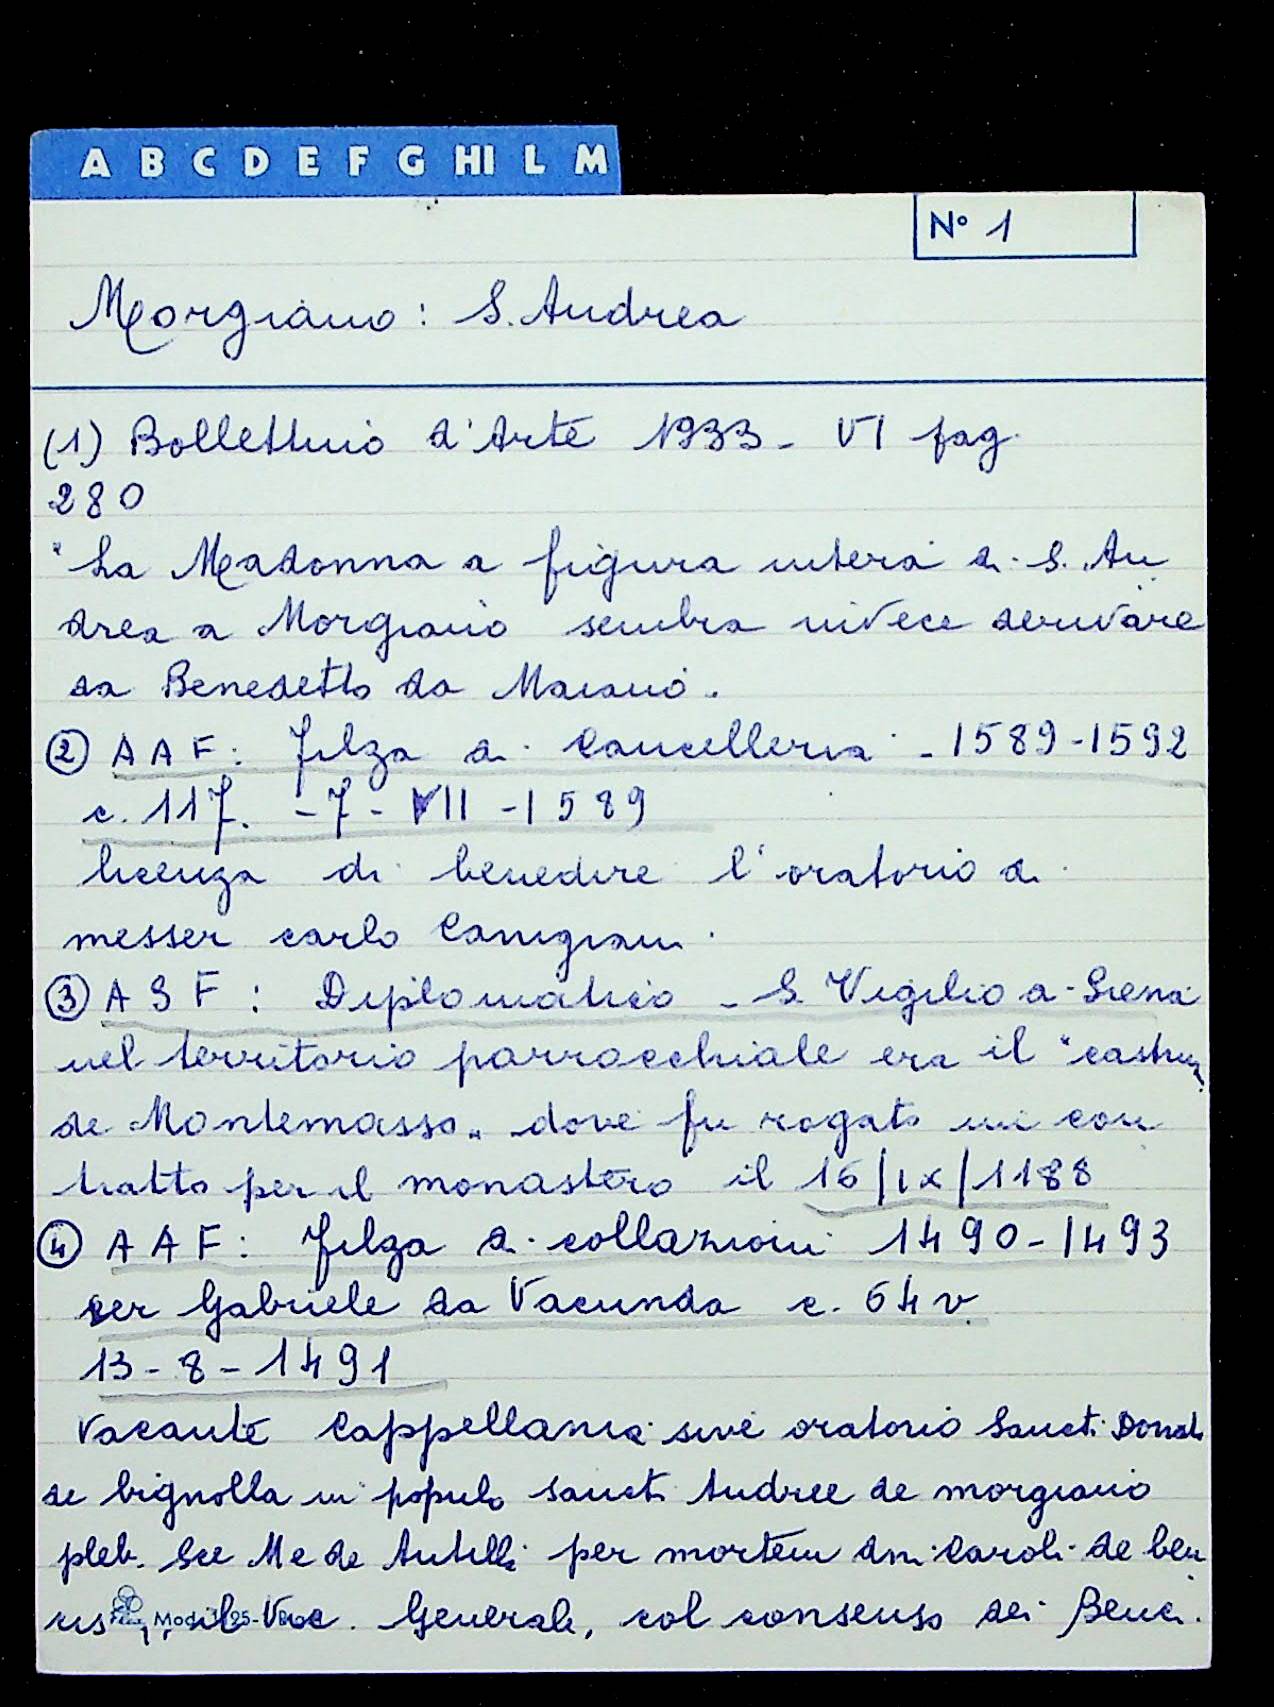 A B C D E F G HI L M
N° 1
Morgiano: S. Andrea
(1) Bollettino d'Arte 1933 - VI pag.
280
"La Madonna a figura intera di S. An
drea a Morgiano sembra invece derivare
da Benedetto da Maiano.
② AAF: filza di Cancelleria - 1589-1592
c. 117. - 7 - VII - 1589
licenza di benedire l'oratorio di
messer carlo Canigiani.
③ ASF: Diplomatico - S. Vigilio a Siena
nel territorio parrocchiale era il "castrum
de Montemasso" dove fu rogato un con
tratto per il monastero il 16/IX/1188
④ AAF: filza di collazioni 1490-1493
ser Gabriele da Vacunda c. 64 v
13-8-1491
Vacante Cappellania sive oratorio Sancti Donati
de bignolla in populo sancti Andree de morgiano
pleb. Sce Me de Antilli per mortem dni Caroli de
Mod. 25- il Vic. Generale, col consenso dei Benci.